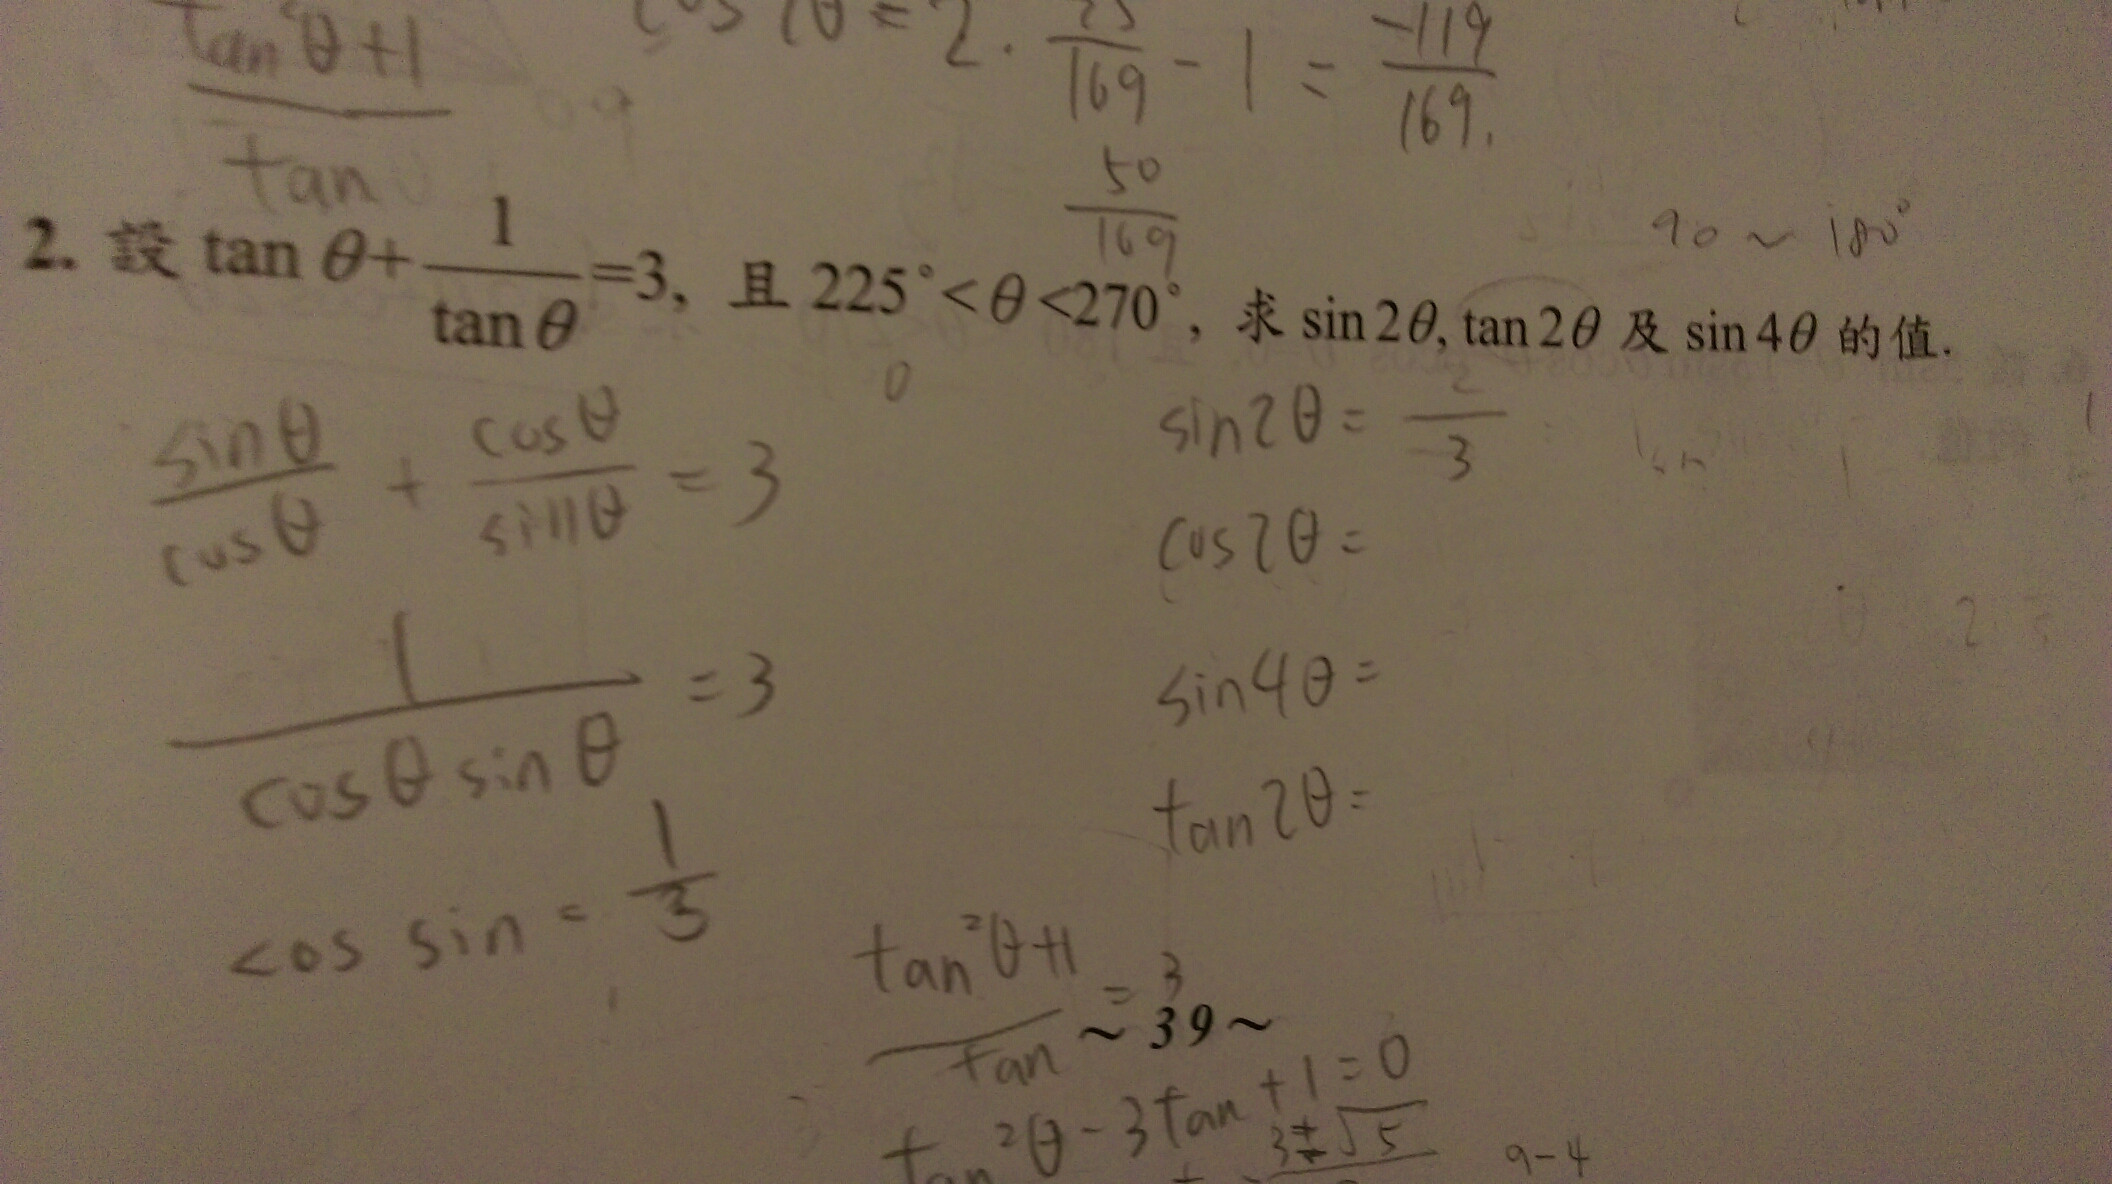 tan²θ+1
tan
cos2θ = 2 · 25/169 - 1 = -119/169
50/169
90 ~ 180°
2. 設 tan θ+1/tan θ=3, 且 225°<θ<270°, 求 sin 2θ, tan 2θ 及 sin 4θ 的值.
0
sinθ/cosθ + cosθ/sinθ = 3
1/cosθ sinθ = 3
cos sin = 1/3
sin2θ = 2/3
cos2θ =
sin4θ =
tan2θ =
tan²θ+1/tan = 3
~39~
tan²θ-3tan+1=0
3±√5
9-4